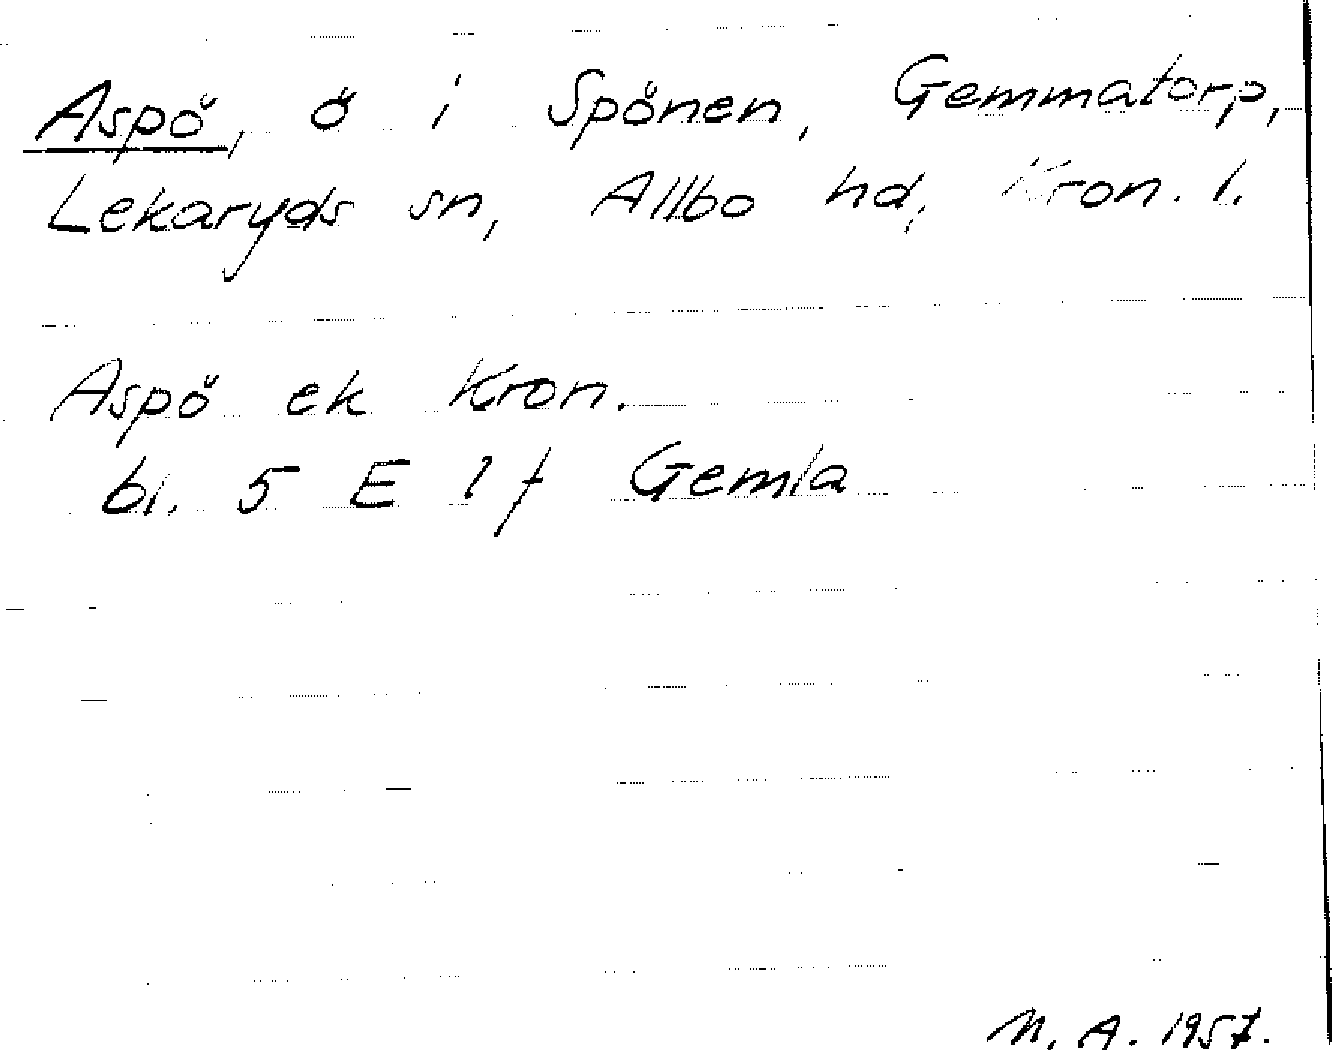 Aspö, ö i Spönen, Gemmatorp,
Lekaryds sn, Allbo hd, Kron. l.
Aspö ek Kron.
bl. 5 E 1 f Gemla
M. A. 1957.